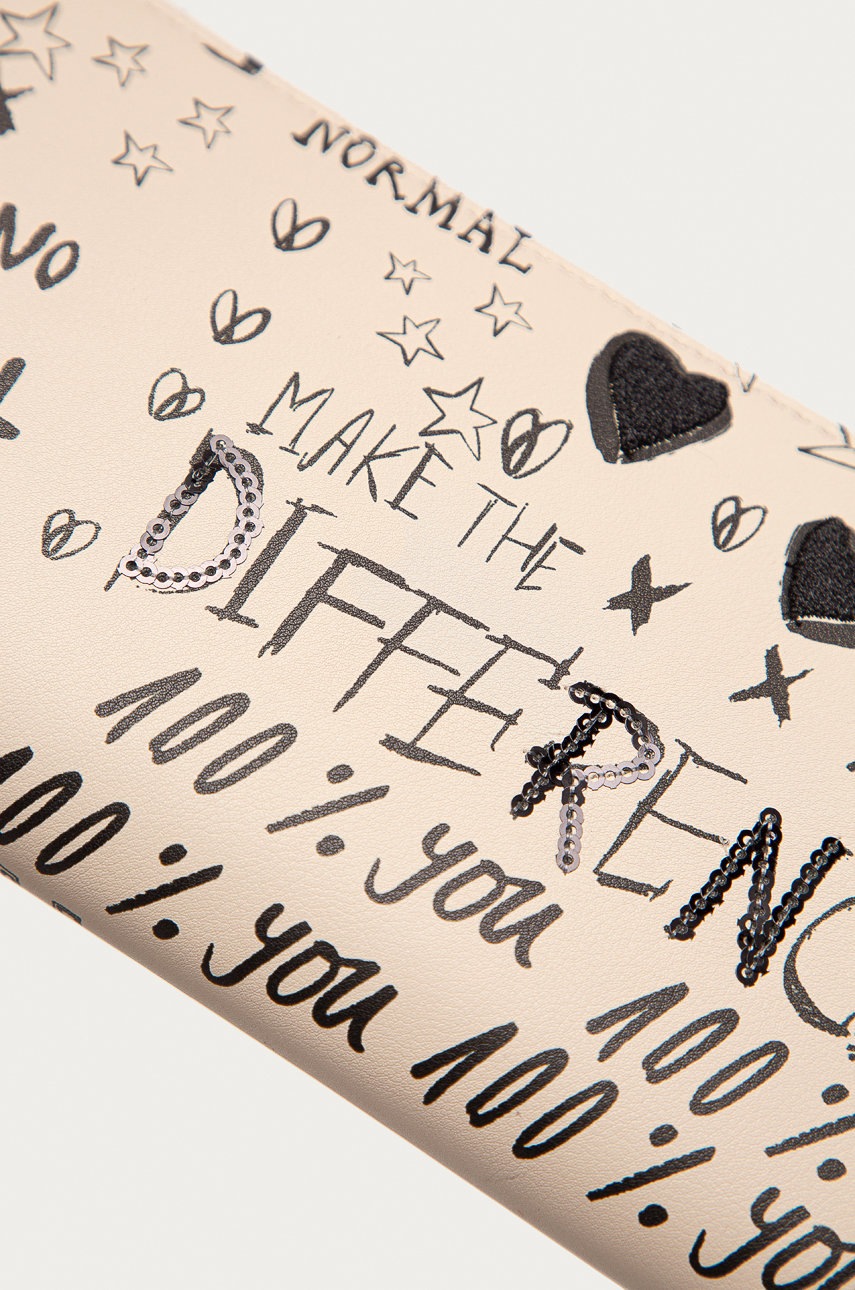 NORMAL
NO
MAKE THE
DIFFERENC
100 % you
100 % you
100 %
100 % you